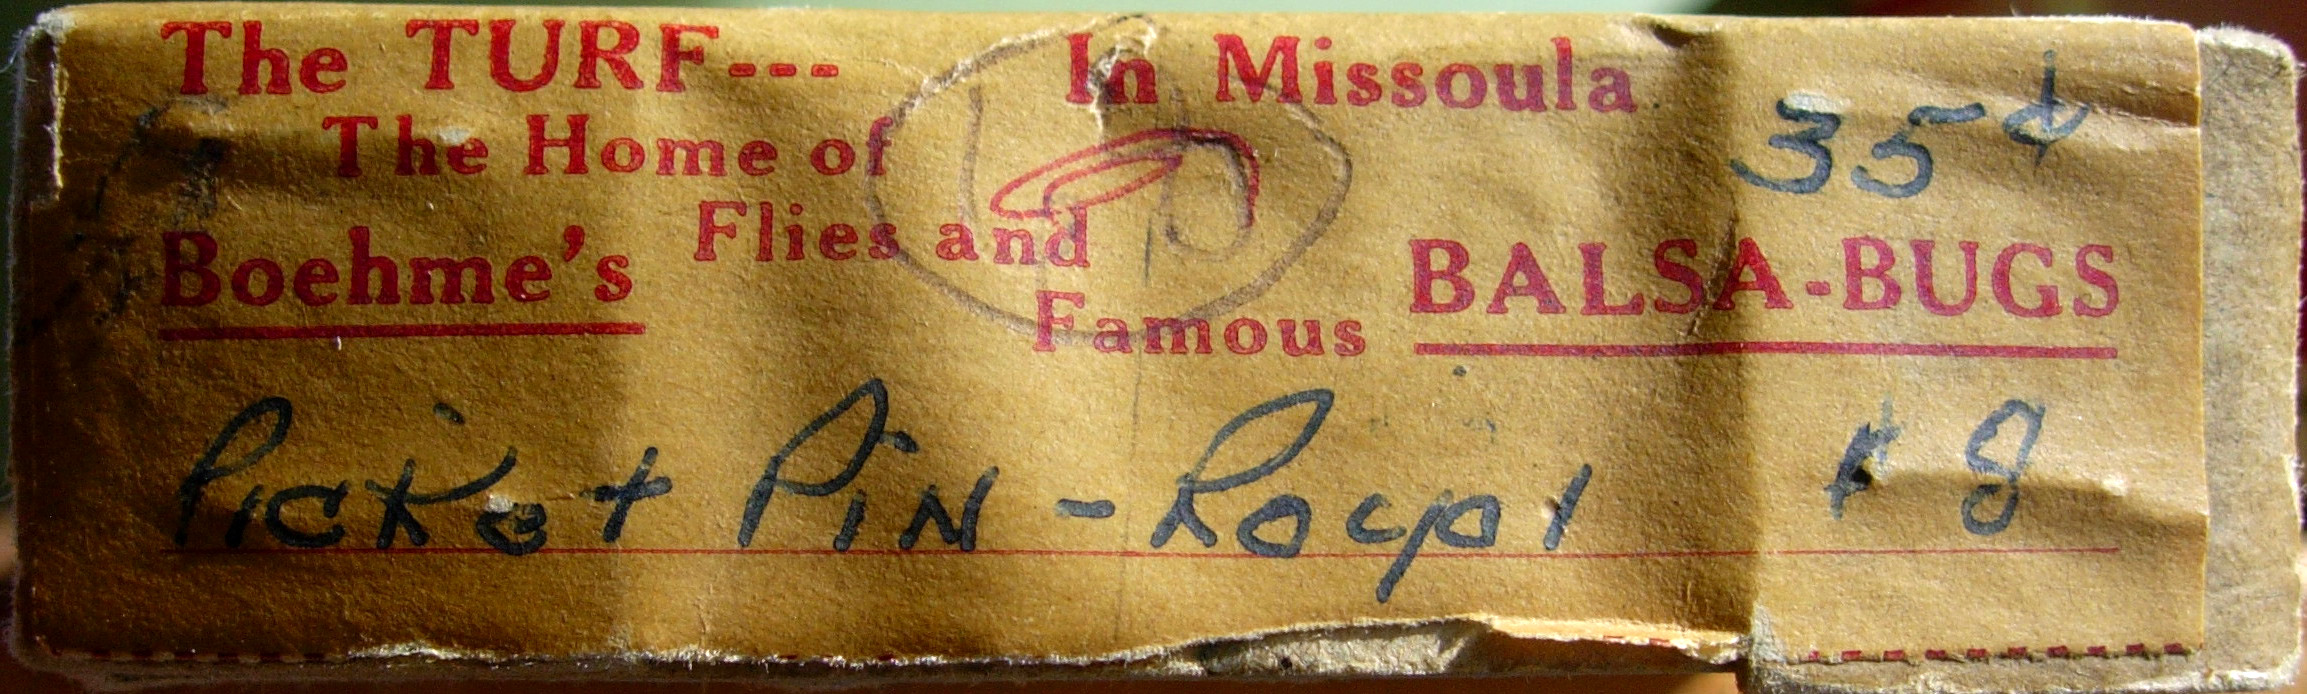 The TURF--- In Missoula
35¢
The Home of
Boehme's Flies and
Famous BALSA-BUGS
Picket Pin - Royal # 8